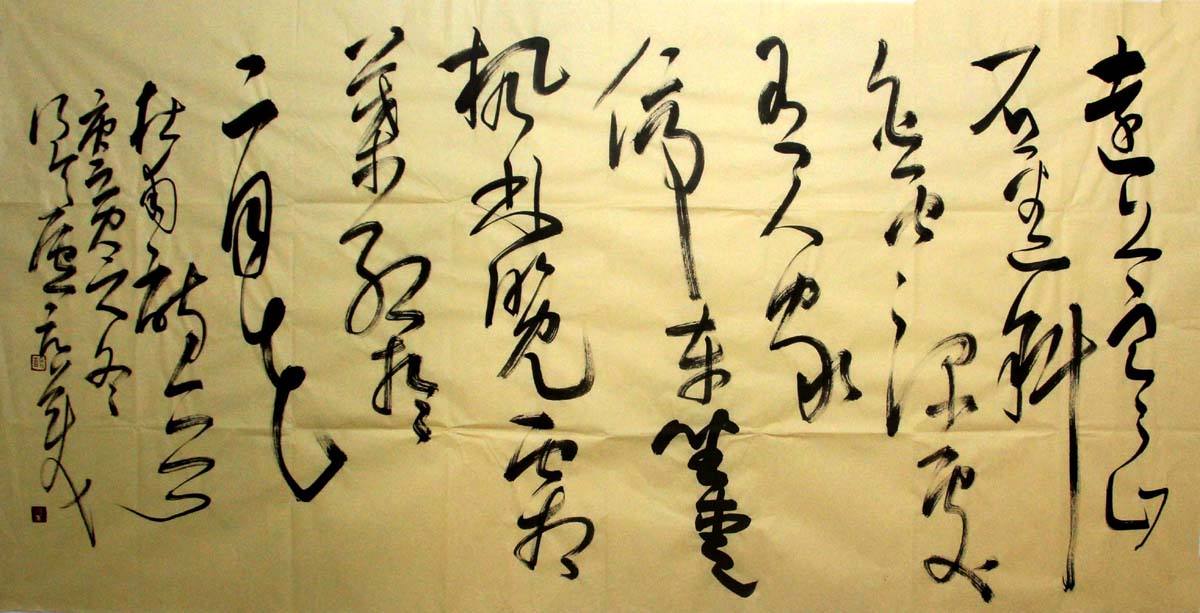 遠上寒山
石徑斜
白雲深處
有人家
停車坐愛
楓林晚霜
葉紅於
二月花
杜 詩
庚寅之冬